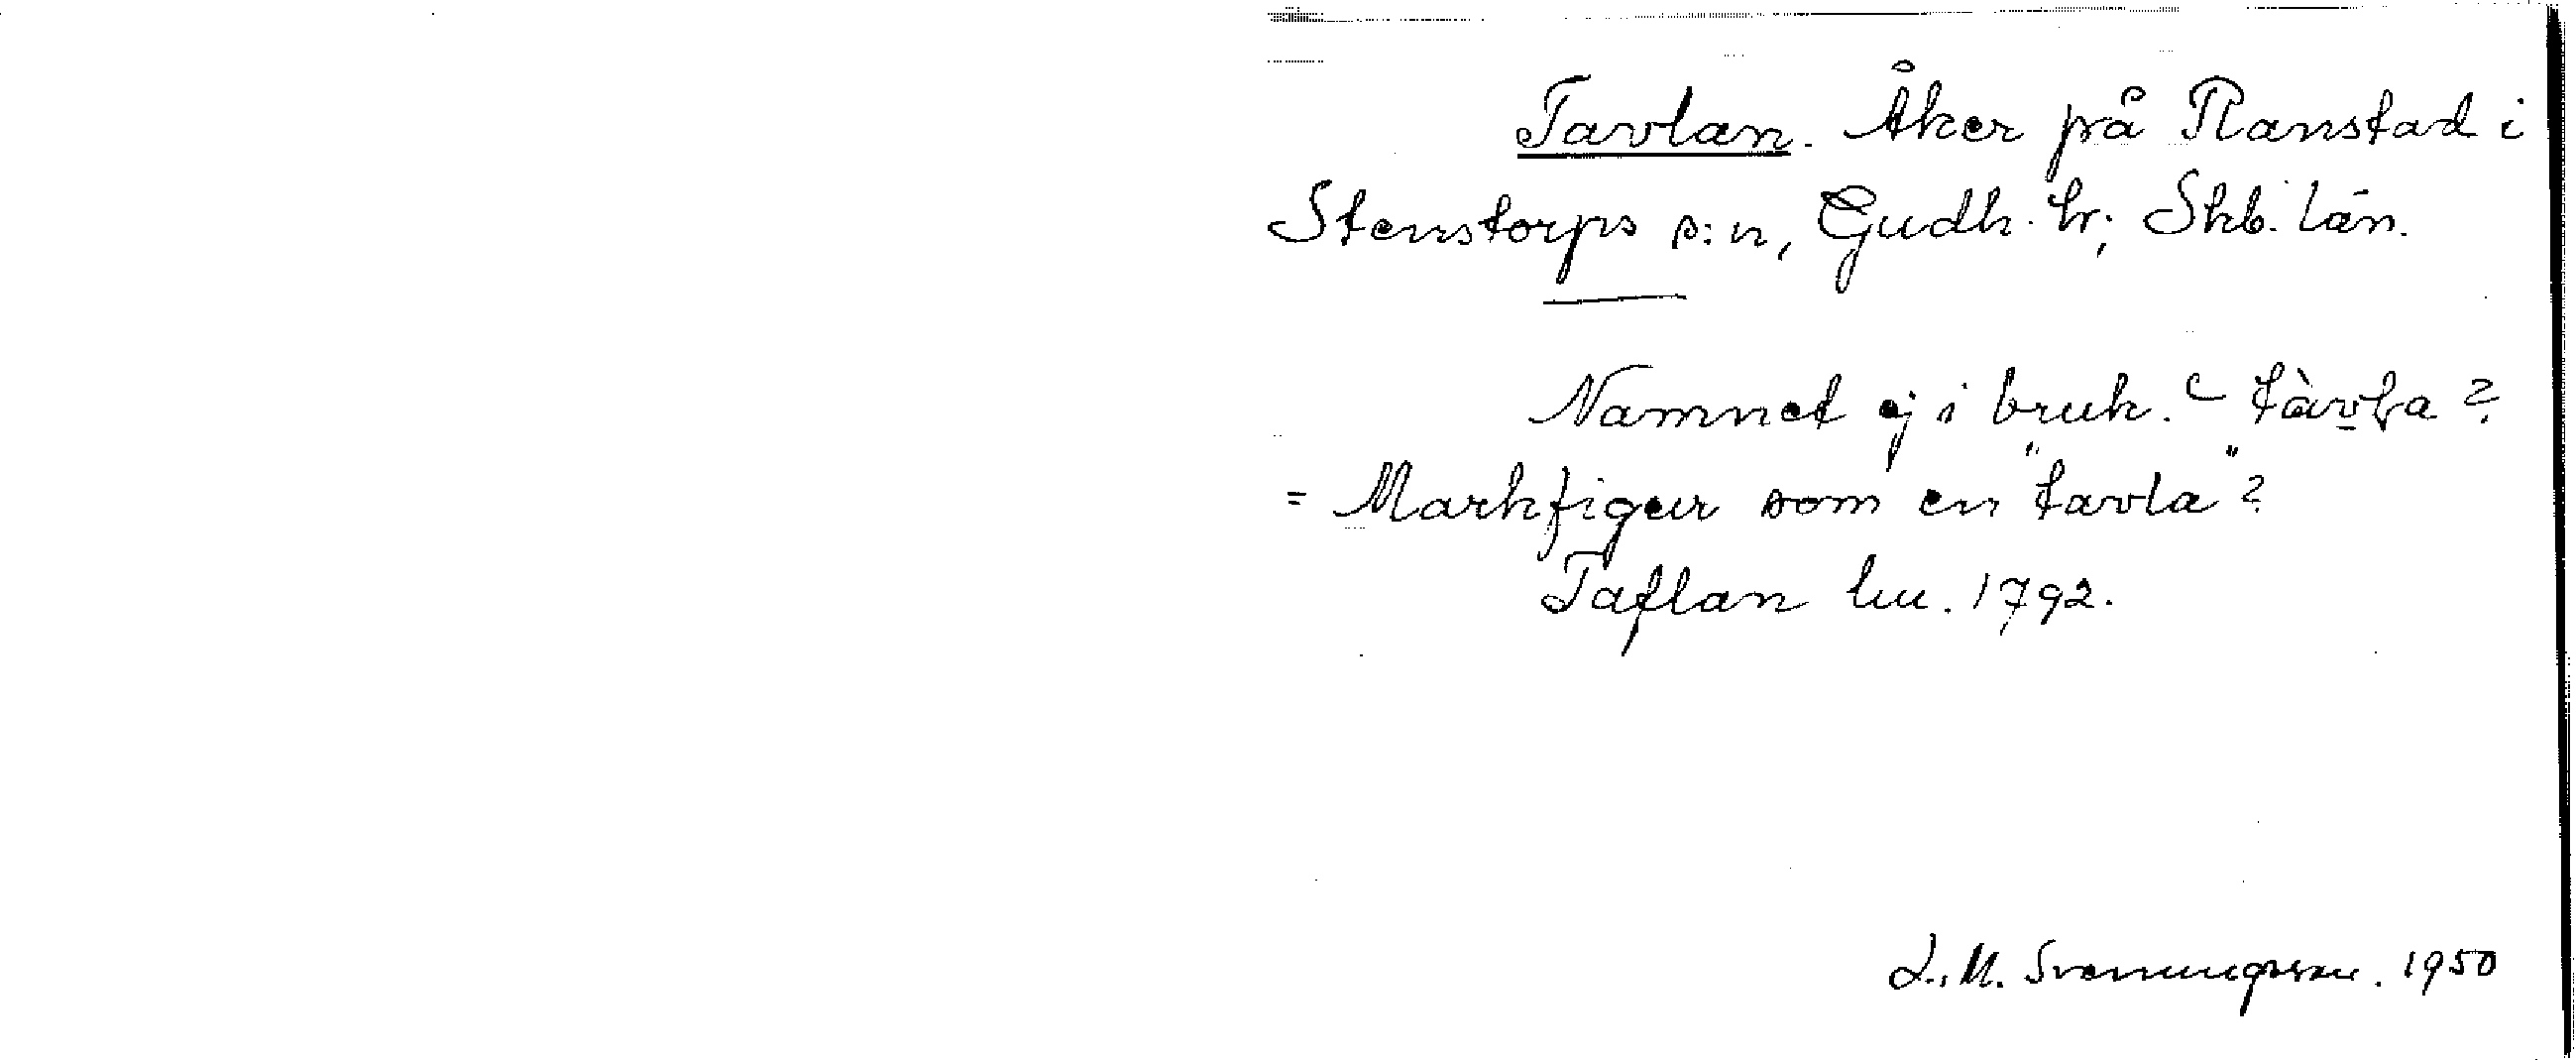 Tavlan. Åker på Ranstad i
Stenstorps s:n, Gudh. hr; Skb. län.
Namnet ej i bruk.
= Markfigur som en "tavla"?
Taflan lm. 1792.
L. M. Svenungsson. 1950